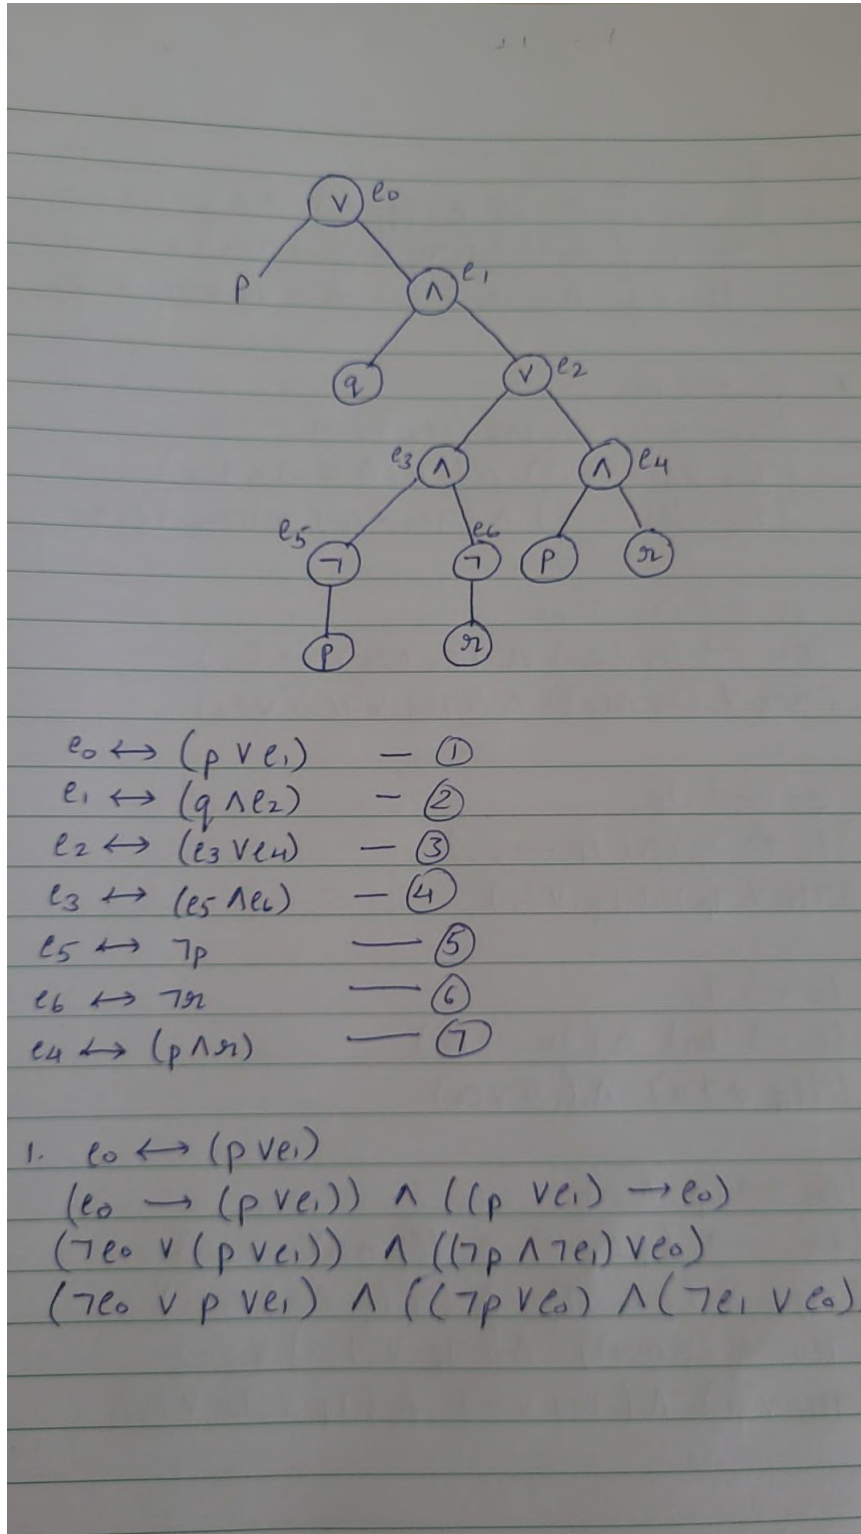 ∨ e₀
p ∧ e₁
q ∨ e₂
e₃ ∧ ∧ e₄
e₅ ¬ e₆ ¬ p r
p r
e₀ ↔ (p ∨ e₁) — ①
e₁ ↔ (q ∧ e₂) — ②
e₂ ↔ (e₃ ∨ e₄) — ③
e₃ ↔ (e₅ ∧ e₆) — ④
e₅ ↔ ¬p — ⑤
e₆ ↔ ¬r — ⑥
e₄ ↔ (p ∧ r) — ⑦
1. e₀ ↔ (p ∨ e₁)
(e₀ → (p ∨ e₁)) ∧ ((p ∨ e₁) → e₀)
(¬e₀ ∨ (p ∨ e₁)) ∧ ((¬p ∧ ¬e₁) ∨ e₀)
(¬e₀ ∨ p ∨ e₁) ∧ ((¬p ∨ e₀) ∧ (¬e₁ ∨ e₀)